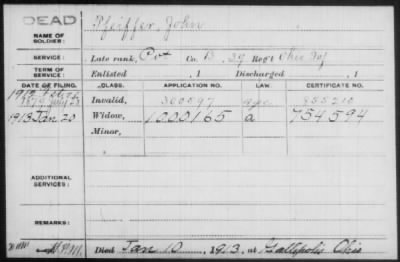 DEAD
NAME OF SOLDIER: Pfeiffer, John
SERVICE: Late rank, Pvt Co. B, 39 Reg't Ohio Inf
TERM OF SERVICE: Enlisted , 1 Discharged , 1
DATE OF FILING. CLASS. APPLICATION NO. LAW. CERTIFICATE NO.
1879 July 23 Invalid, 300097
1913 Jan 20 Widow, 1000165 a 754594
Minor,
ADDITIONAL SERVICES:
REMARKS:
Died Jan 10, 1913, at Gallipolis Ohio